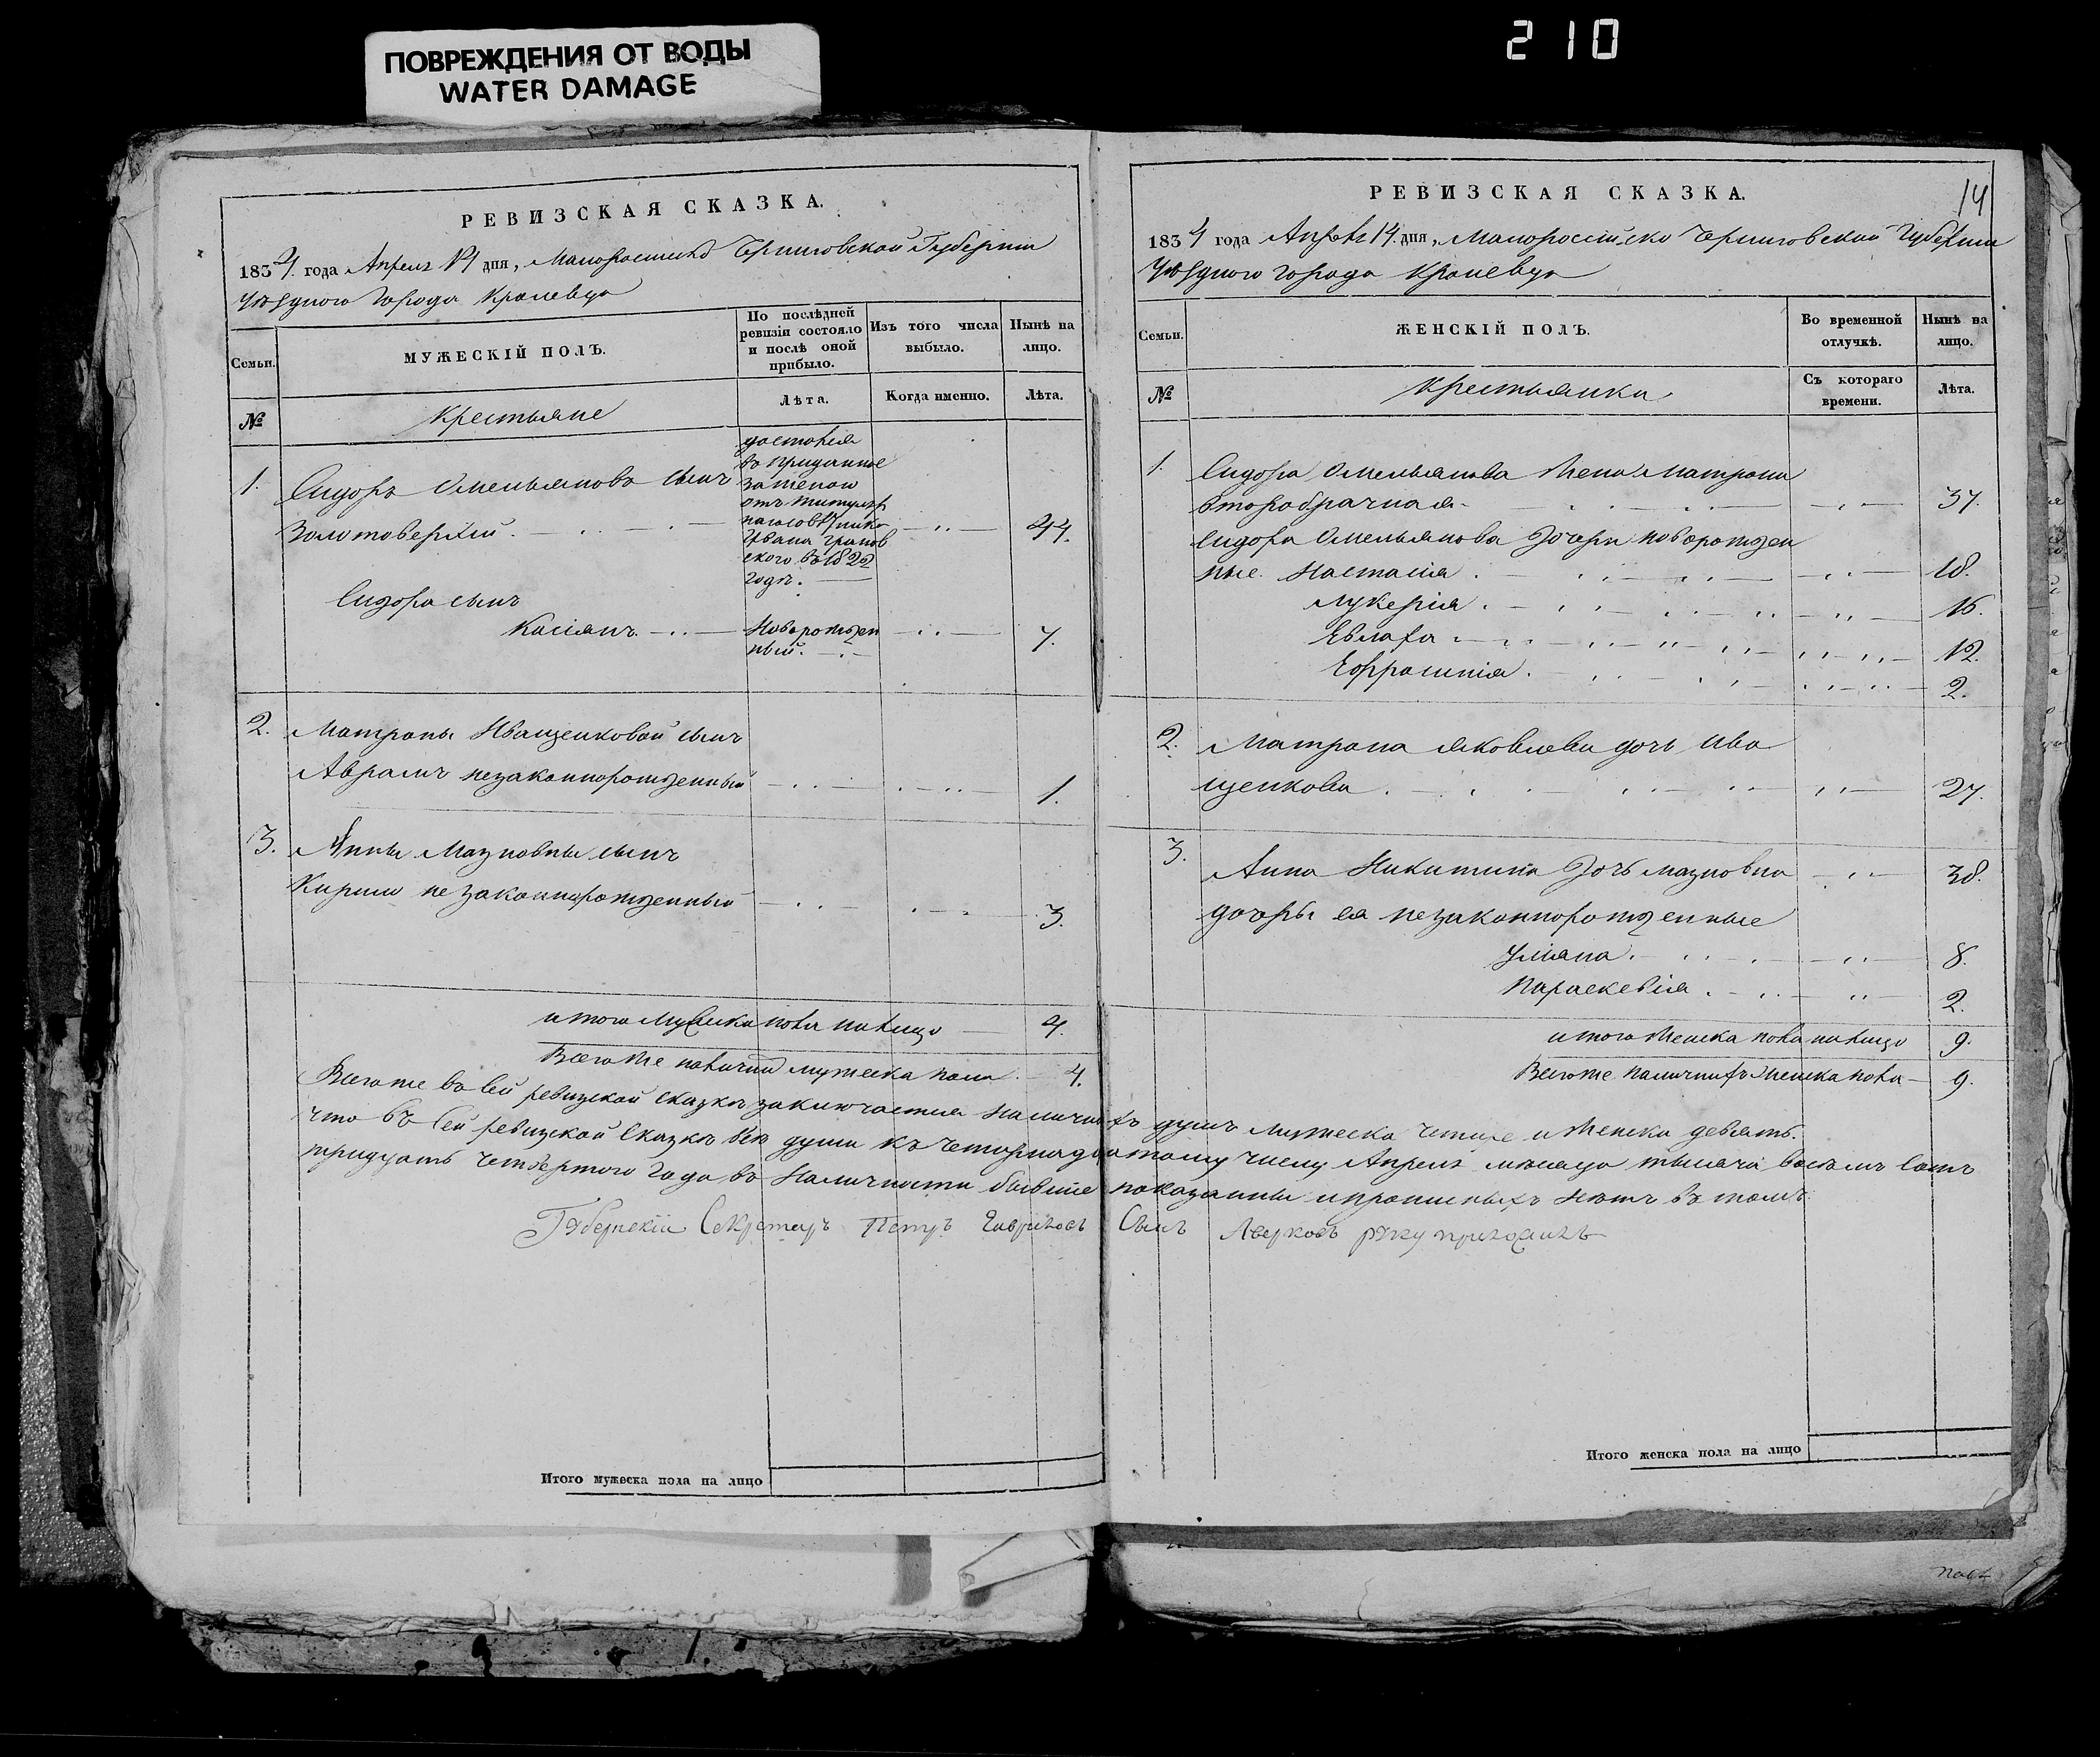 ПОВРЕЖДЕНИЯ ОТ ВОДЫ
WATER DAMAGE
210
РЕВИЗСКАЯ СКАЗКА.
1834 года Апреля 14 дня, Малороссийско Черниговской Губернии
Уѣздного Города Кролевца
Семьи.
МУЖЕСКІЙ ПОЛЪ.
По послѣдней ревизіи состояло и послѣ оной прибыло.
Изъ того числа выбыло.
Нынѣ на лицо.
№
Крестьяне
Лѣта.
Когда именно.
Лѣта.
1.
Сидоръ Омельяновъ сынъ
Золотоверхий
достался
въ приданное
за женою
отъ титуляр
наго
Ивана
ского въ 1822
годѣ.
44.
Сидора сынъ
Касіянъ
Новорожден
ный.
7.
2. Матроны Иващенковой сынъ
Аврамъ незаконнорожденный
1.
3. Анны Мазновны сынъ
Кирило незаконнорожденный
3.
итого Мужеска пола налицо 4.
Всего же наличнихъ мужеска пола 4.
РЕВИЗСКАЯ СКАЗКА.
14
1834 года Апреля 14 дня, Малороссийско Черниговской Губернии
Уѣздного города Кролевца
Семьи.
ЖЕНСКІЙ ПОЛЪ.
Во временной отлучкѣ.
Нынѣ на лицо.
№
Крестьянки
Съ котораго времени.
Лѣта.
1.
Сидора Омельянова жена Матрона
второбрачная 37.
Сидора Омельянова дочери новорожден
ные. Настасія 18.
Лукерія 16.
Евлафа 12.
Ефросинія 2.
2. Матрона Яковлева дочь Ива
щенкова 27.
3.
Анна Никитина дочь мазновна 38.
дочеры ея незаконнорожденные
Уліяна 8.
Параскевія 2.
итого женска пола налицо 9.
Всего же наличнихъ женска пола 9.
Всего же въ сей ревизской сказкѣ заключается наличнихъ душъ мужеска четыре и женска девять.
что въ сей ревизской сказкѣ все души къ четырнадцатому числу Апреля месяца тысяча восемъ сотъ
тридцать четвертого года въ наличности бывшие показанны и прописныхъ нѣтъ въ томъ
Губернскій Секретаръ Петръ Гавриловъ Сынъ Аверковъ руку приложилъ
Итого мужеска пола на лицо
Итого женска пола на лицо